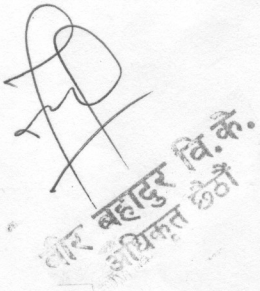 वीर बहादुर वि.के.
अधिकृत छैठौं